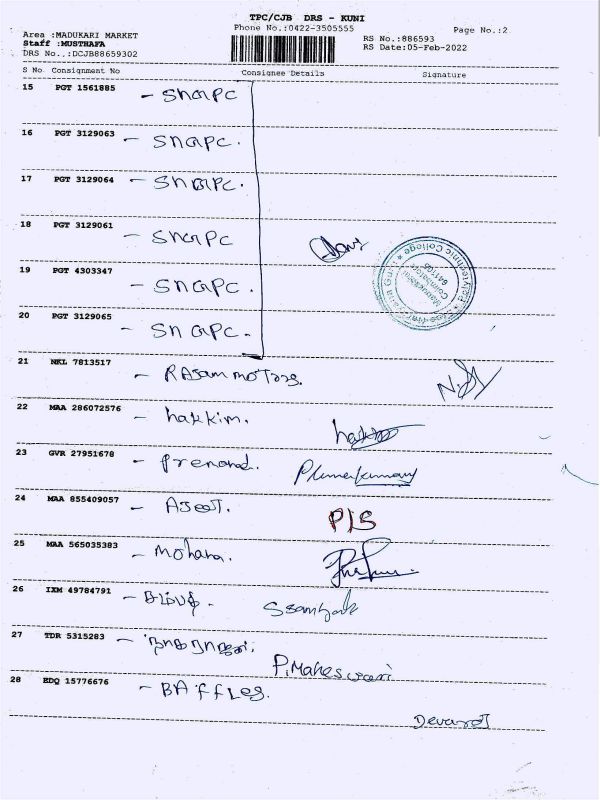 TPC/CJB DRS - KUNI
Phone No.:0422-3505555
Page No.:2
Area :MADUKARI MARKET
Staff :MUSTHAFA
DRS No..:DCJB88659302
RS No.:886593
RS Date:05-Feb-2022
S No. Consignment No Consignee Details Signature
15 PGT 1561885 - SNGPC
16 PGT 3129063 - SNGPC.
17 PGT 3129064 - SNGPC.
18 PGT 3129061 - SNGPC
19 PGT 4303347 - SNGPC.
20 PGT 3129065 - SNGPC.
21 NKL 7813517 - RAsam moTors.
22 MAA 286072576 - hakkim.
23 GVR 27951678
24 MAA 855409057 P/S
25 MAA 565035383 - Mohana.
26 IXM 49784791
27 TDR 5315283
P.Maheswari
28 BDQ 15776676 - BAFFLes.